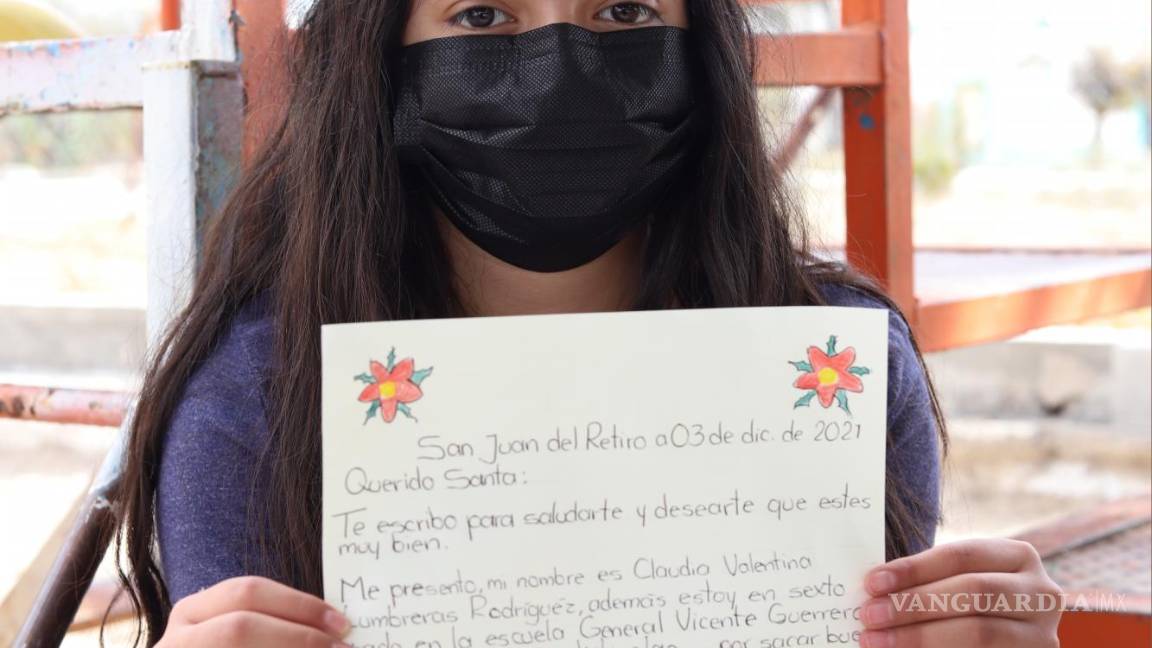 San Juan del Retiro a 03 de dic. de 2021
Querido Santa:
Te escribo para saludarte y desearte que estes
muy bien.
Me presento, mi nombre es Claudia Valentina
Lumbreras Rodríguez, además estoy en sexto
en la escuela General Vicente Guerrero
por sacar bue
VANGUARDIA|MX